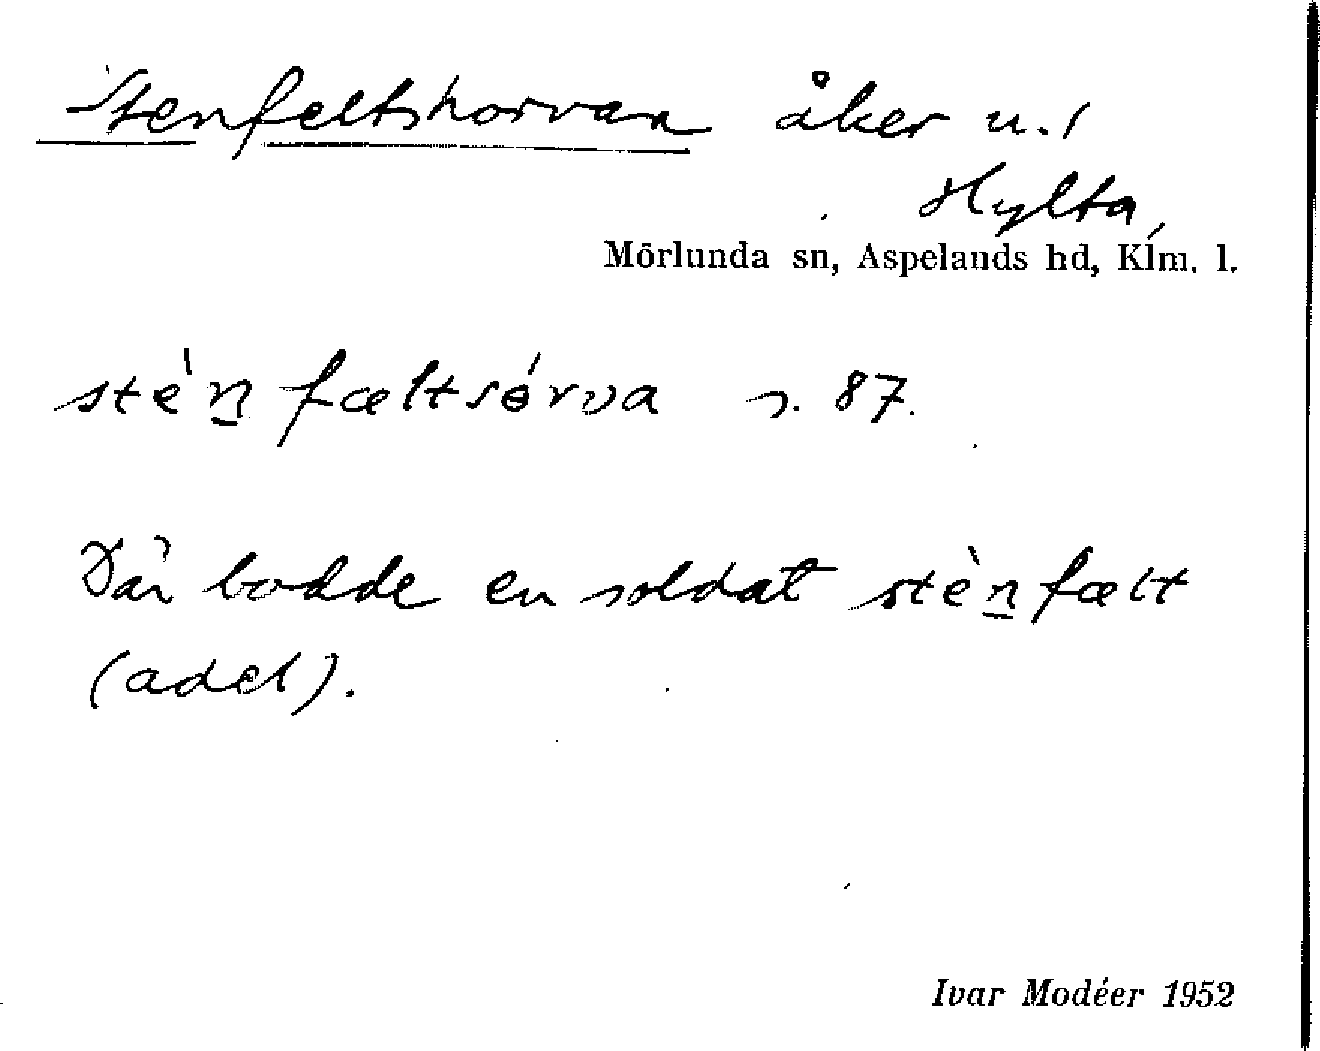 Stenfeltshorvan åker u. /
Hylta,
Mörlunda sn, Aspelands hd, Klm. l.
stè'n̲fæltsɵ́rva s. 87.
Där bodde en soldat stèn̲fælt
(adel).
Ivar Modéer 1952